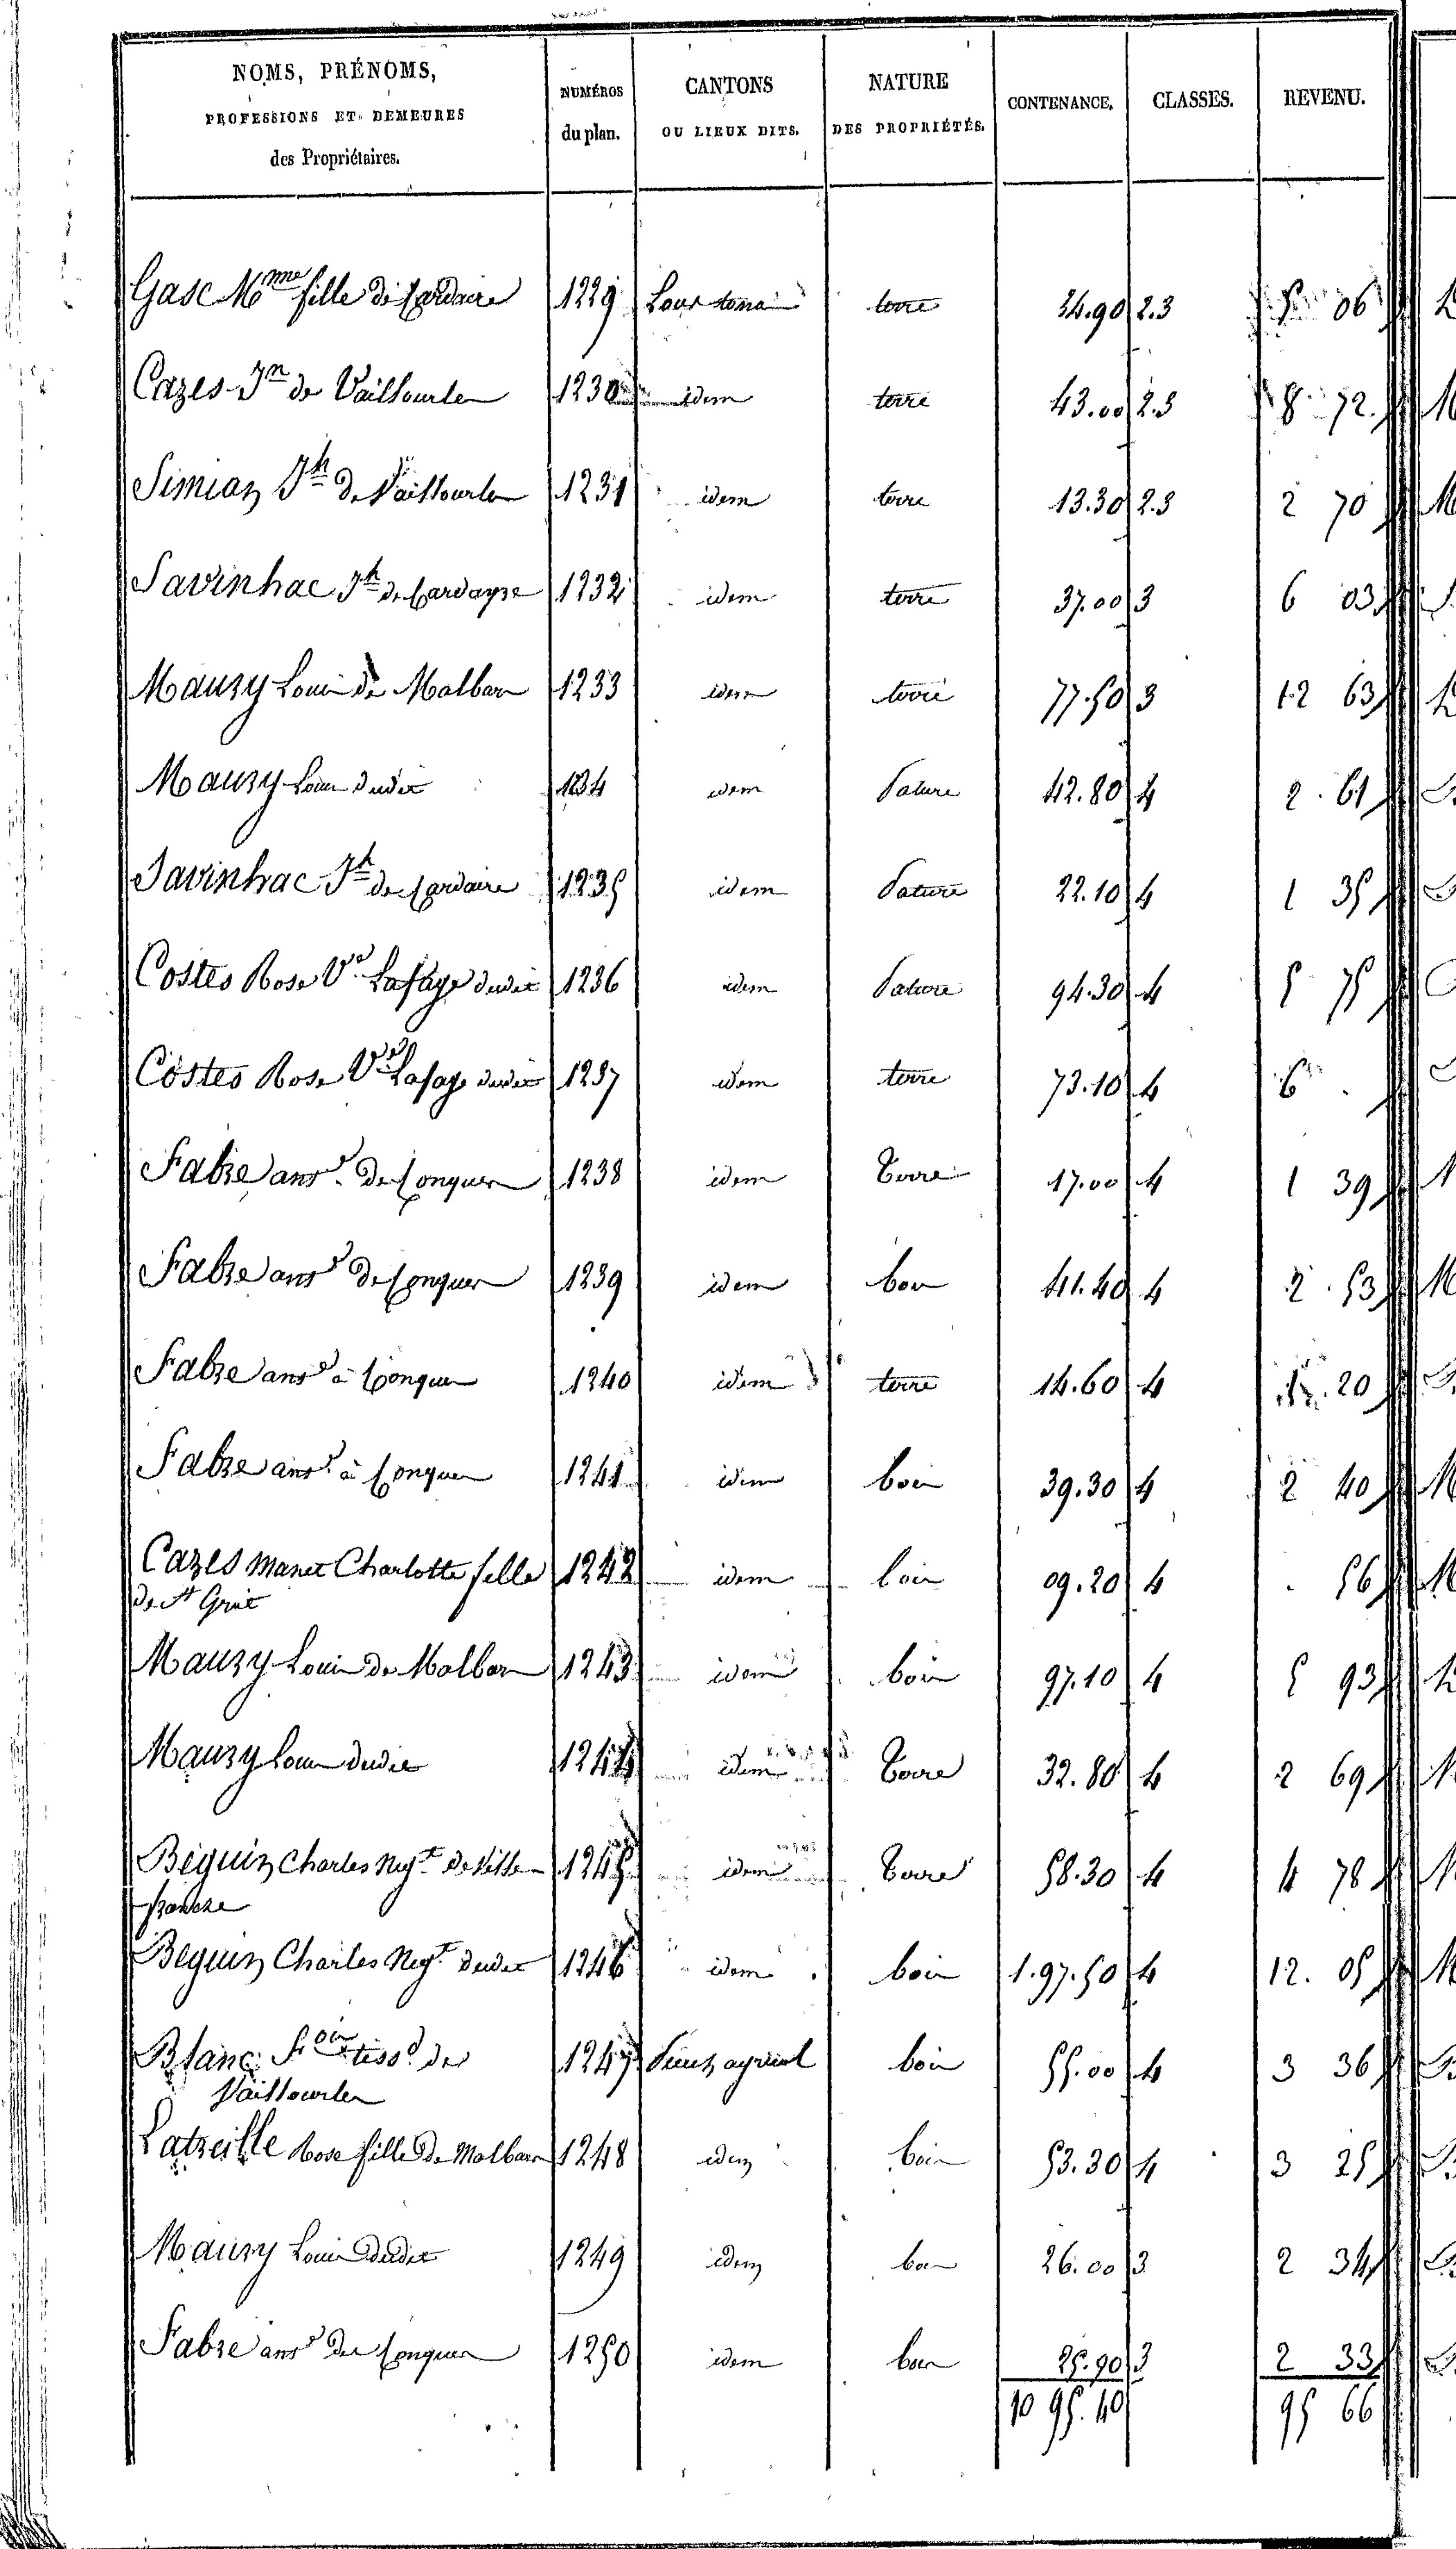 NOMS, PRÉNOMS, PROFESSIONS ET DEMEURES des Propriétaires. NUMÉROS du plan. CANTONS OU LIEUX DITS. NATURE DES PROPRIÉTÉS. CONTENANCE. CLASSES. REVENU.
Gasc Mme fille de Cardaire 1229 terre 34.90 2.3 5 06
Cazes Jn de Vailhourles 1230 idem terre 43.00 2.3 8 72
Simian Jh de Vailhourles 1231 idem terre 13.30 2.3 2 70
Savinhac Jh de Cardayre 1232 idem terre 37.00 3 6 03
Maury Louis de Malbar 1233 idem terre 77.50 3 12 63
Maury Louis dudit 1234 idem Pature 42.80 4 2 61
Savinhac Jh de Cardaire 1235 idem Pature 22.10 4 1 35
Costes Rose Ve Lafage dudit 1236 idem Pature 94.30 4 5 75
Costes Rose Ve Lafage dudit 1237 idem terre 73.10 4 6
Fabre ans de Conques 1238 idem Terre 17.00 4 1 39
Fabre ans de Conques 1239 idem bois 41.40 4 2 53
Fabre ans à Conques 1240 idem terre 14.60 4 20
Fabre ans à Conques 1241 idem bois 39.30 4 2 40
Cazes Charlotte fille 1242 idem bois 09.20 4 . 56
de St Grat
Maury Louis de Malbar 1243 idem bois 97.10 4 5 93
Maury Louis dudit 1244 idem Terre 32.80 4 2 69
Beguin Charles Negt de Ville- 1245 idem Terre 58.30 4 4 78
franche
Beguin Charles Negt dudit 1246 idem bois 1.97.50 4 12. 05
Blanc fois tissd de 1247 bois 55.00 4 3 36
Vailhourles
Latreille Rose fille de Malbar 1248 idem bois 53.30 4 3 25
Maury Louis dudit 1249 idem bois 26.00 3 2 34
Fabre ans de Conques 1250 idem bois 25.90 3 2 33
10 95.40 95 66